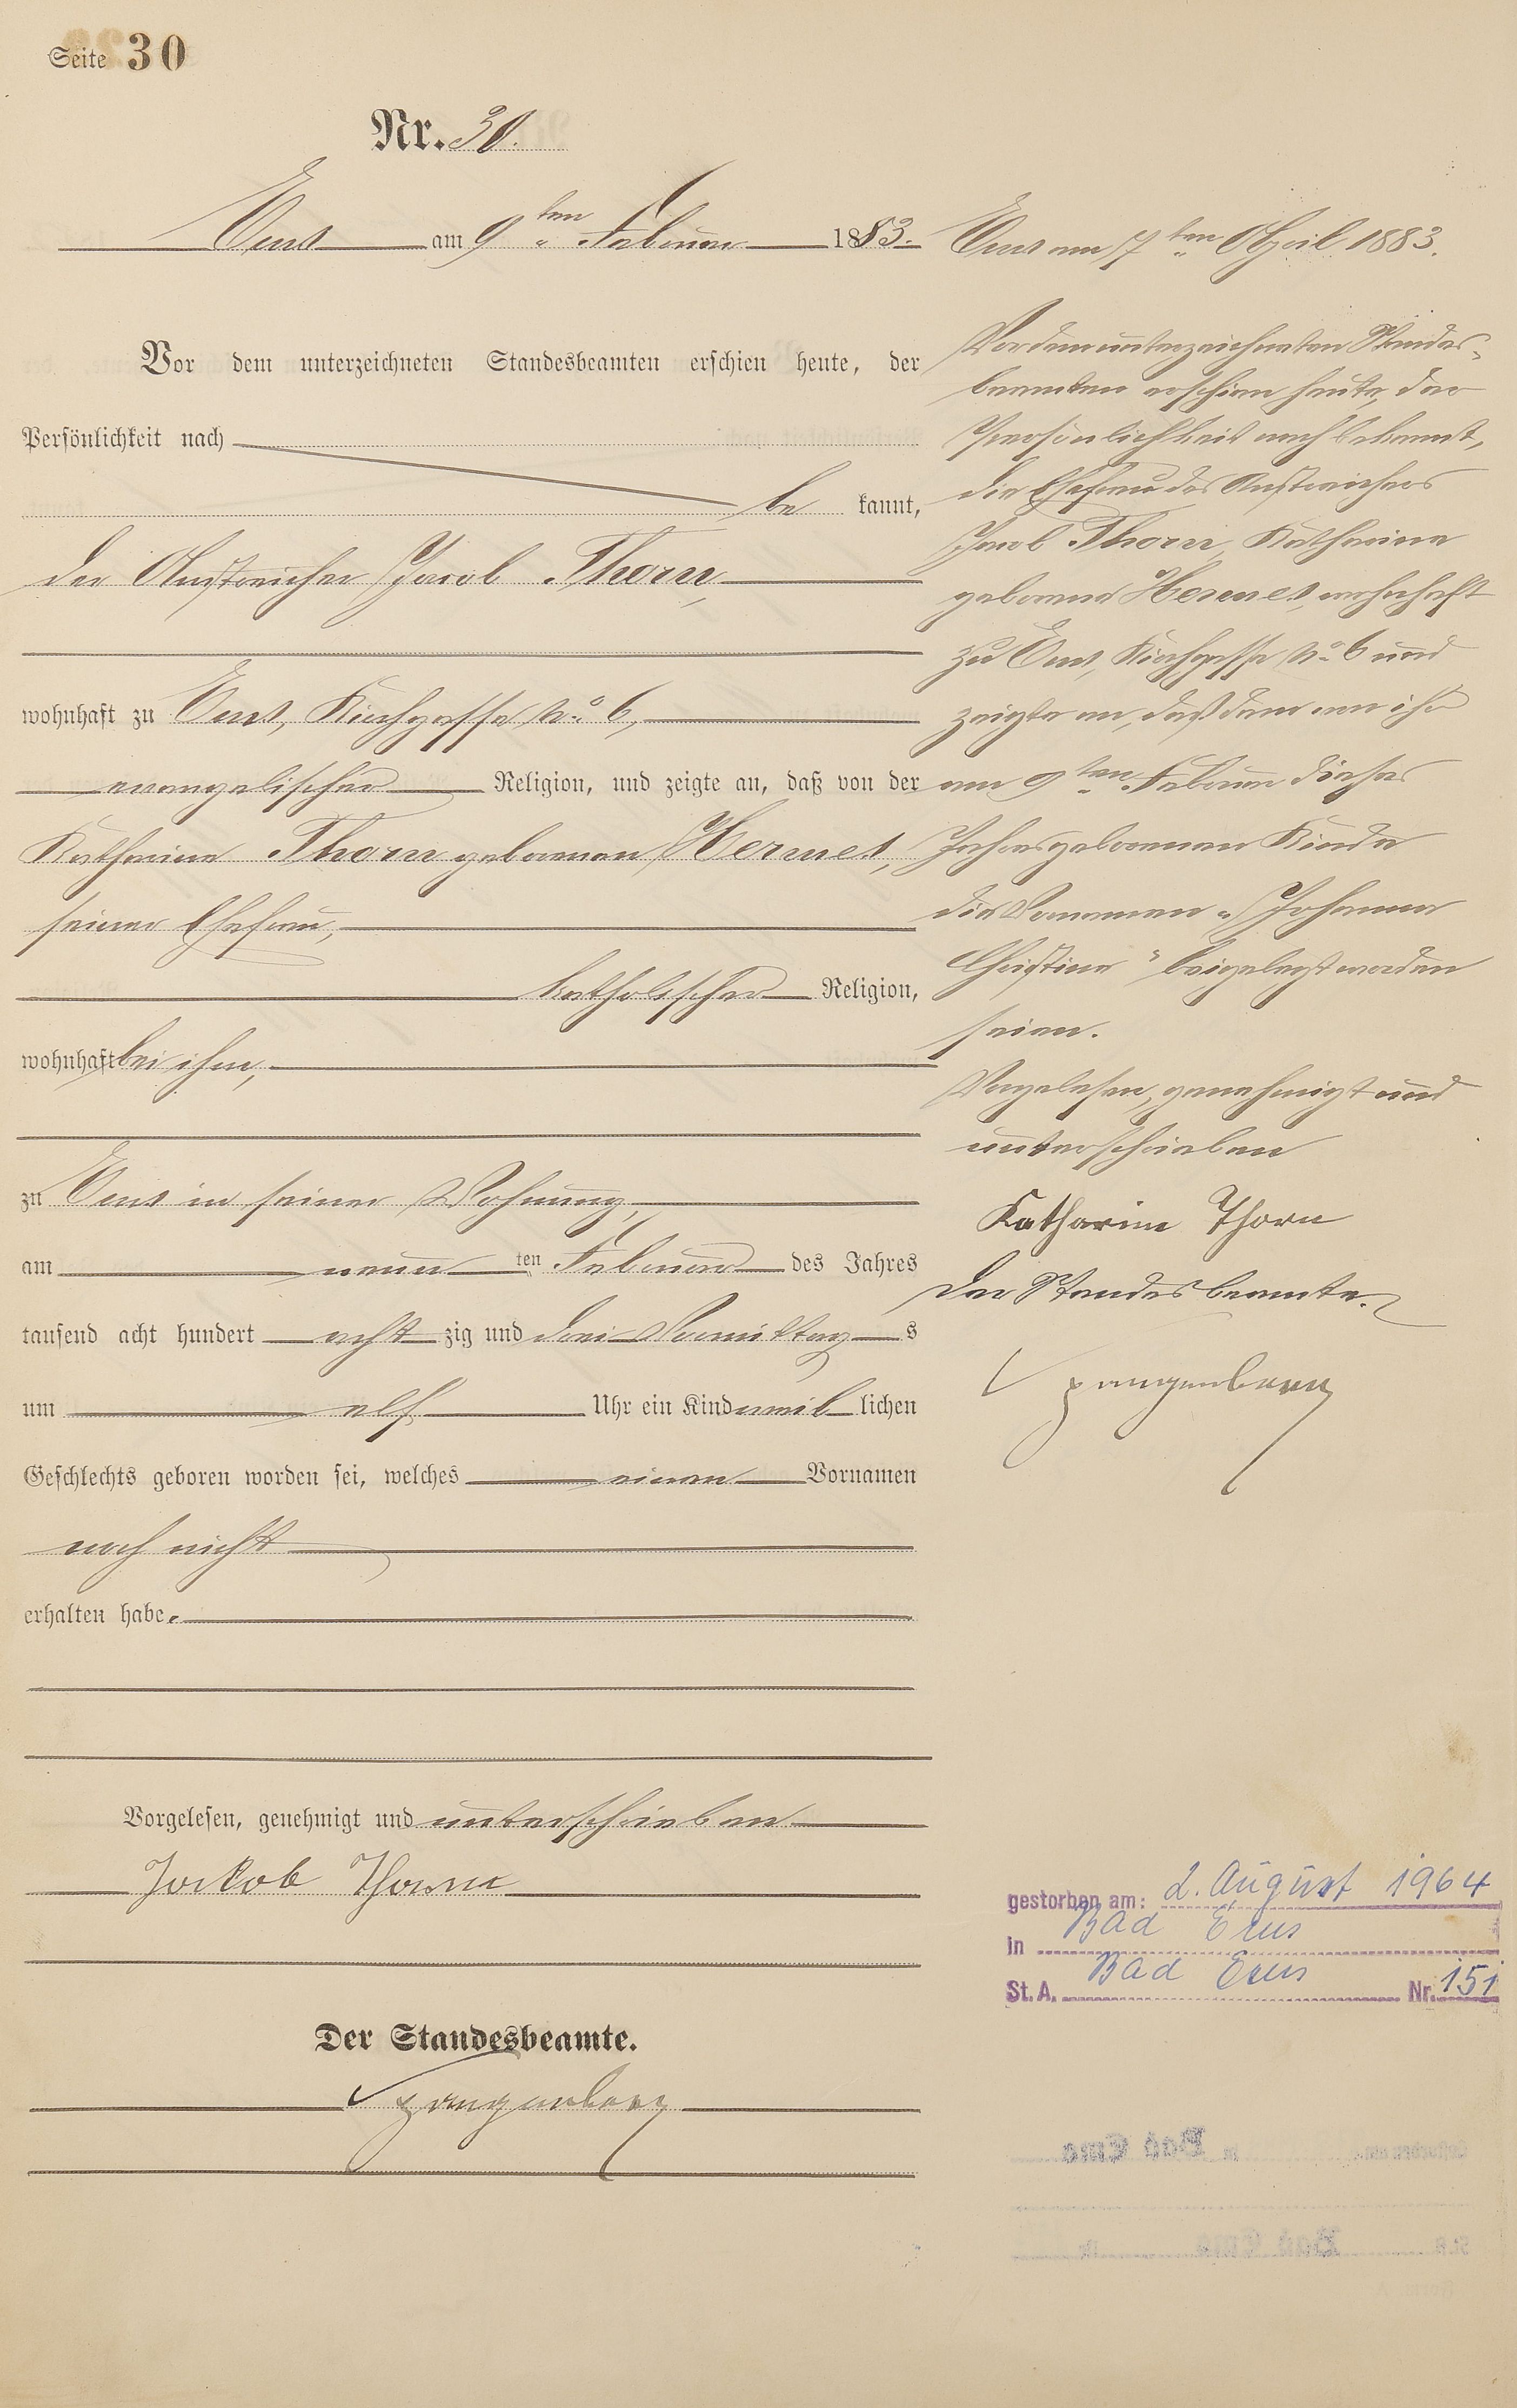 Seite 30
Nr. 30.
Ems am 9ten Februar 1883.
Vor dem unterzeichneten Standesbeamten erschien heute, der
Persönlichkeit nach
be kannt,
der Anstreicher Jacob Thorn,
wohnhaft zu Ems, Kirchgasse No. 6,
evangelischer Religion, und zeigte an, daß von der
Katharina Thorn geborenen Hermes,
seiner Ehefrau,
katholischer Religion,
wohnhaft bei ihm,
zu Ems in seiner Wohnung,
am neunten Februar des Jahres
tausend acht hundert achtzig und drei Vormittags
um elf Uhr ein Kind weiblichen
Geschlechts geboren worden sei, welches einen Vornamen
noch nicht
erhalten habe.
Vorgelesen, genehmigt und unterschrieben
Jackob Thorn
Der Standesbeamte.
Spangenberg
Ems am 7ten April 1883.
Vor dem unterzeichneten Standes-
beamten erschien heute, der
Persönlichkeit nach bekannt,
die Ehefrau des Anstreichers
Jacob Thorn, Katharina
geborene Hermes, wohnhaft
zu Ems, Kirchgasse No. 6 und
zeigte an, daß dem von ihr
am 9ten Februar dieses
Jahres geborenen Kinde
die Vornamen „Johanna
Christine" beigelegt worden
seien.
Vorgelesen, genehmigt und
unterschrieben
Katharina Thorn
Der Standesbeamte.
Spangenberg
gestorben am: 2. August 1964
in Bad Ems
St. A. Bad Ems Nr. 151